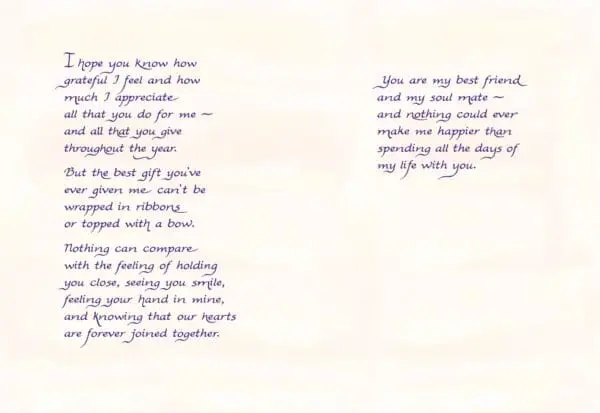 I hope you know how
grateful I feel and how
much I appreciate
all that you do for me ~
and all that you give
throughout the year.
But the best gift you've
ever given me can't be
wrapped in ribbons
or topped with a bow.
Nothing can compare
with the feeling of holding
you close, seeing you smile,
feeling your hand in mine,
and knowing that our hearts
are forever joined together.
You are my best friend
and my soul mate ~
and nothing could ever
make me happier than
spending all the days of
my life with you.